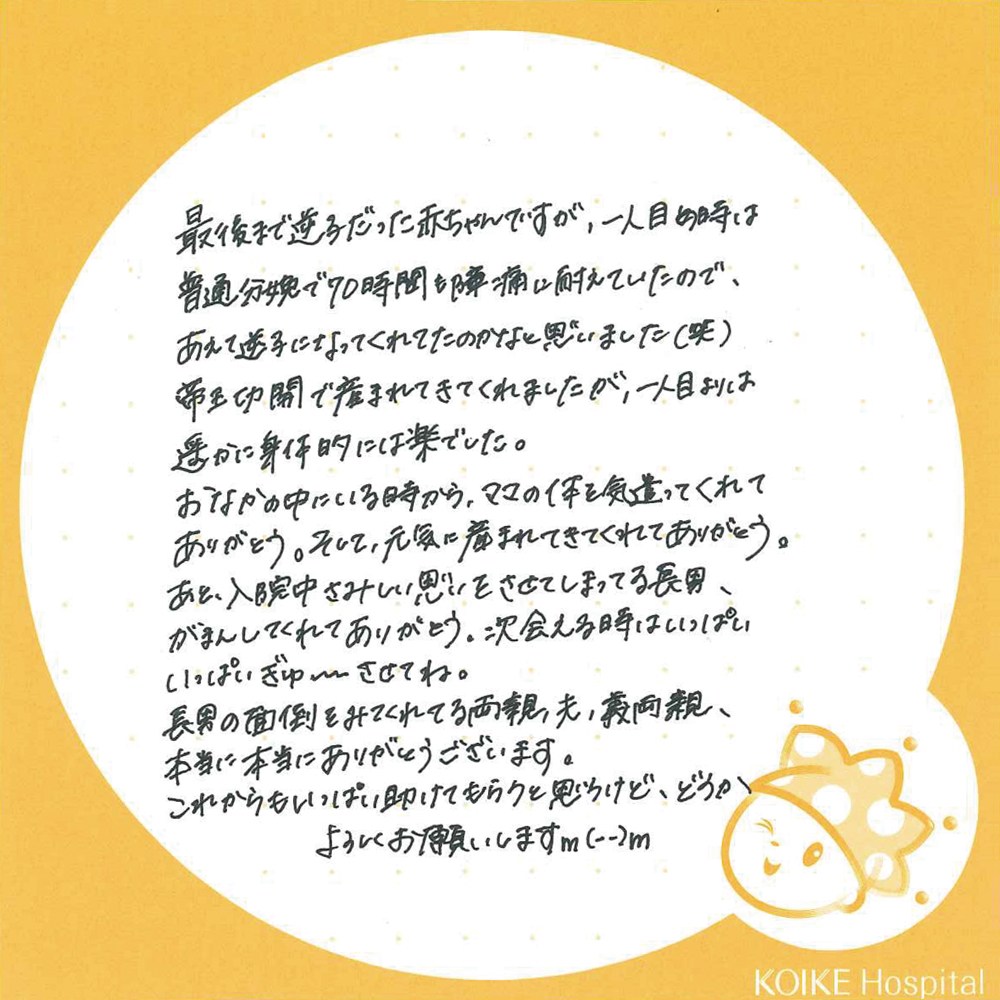 最後まで逆子だった赤ちゃんですが、一人目の時は
普通分娩で70時間も陣痛に耐えていたので、
あえて逆子になってくれてたのかなと思いました(笑)
帝王切開で産まれてきてくれましたが、一人目よりは
遥かに身体的には楽でした。
おなかの中にいる時から、ママの体を気遣ってくれて
ありがとう。そして、元気に産まれてきてくれてありがとう。
あと、入院中さみしい思いをさせてしまってる長男、
がまんしてくれてありがとう。次会える時はいっぱい
いっぱいぎゅ〜〜させてね。
長男の面倒をみてくれてる両親、夫、義両親、
本当に本当にありがとうございます。
これからもいっぱい助けてもらうと思うけど、どうか
よろしくお願いしますm(--)m
KOIKE Hospital